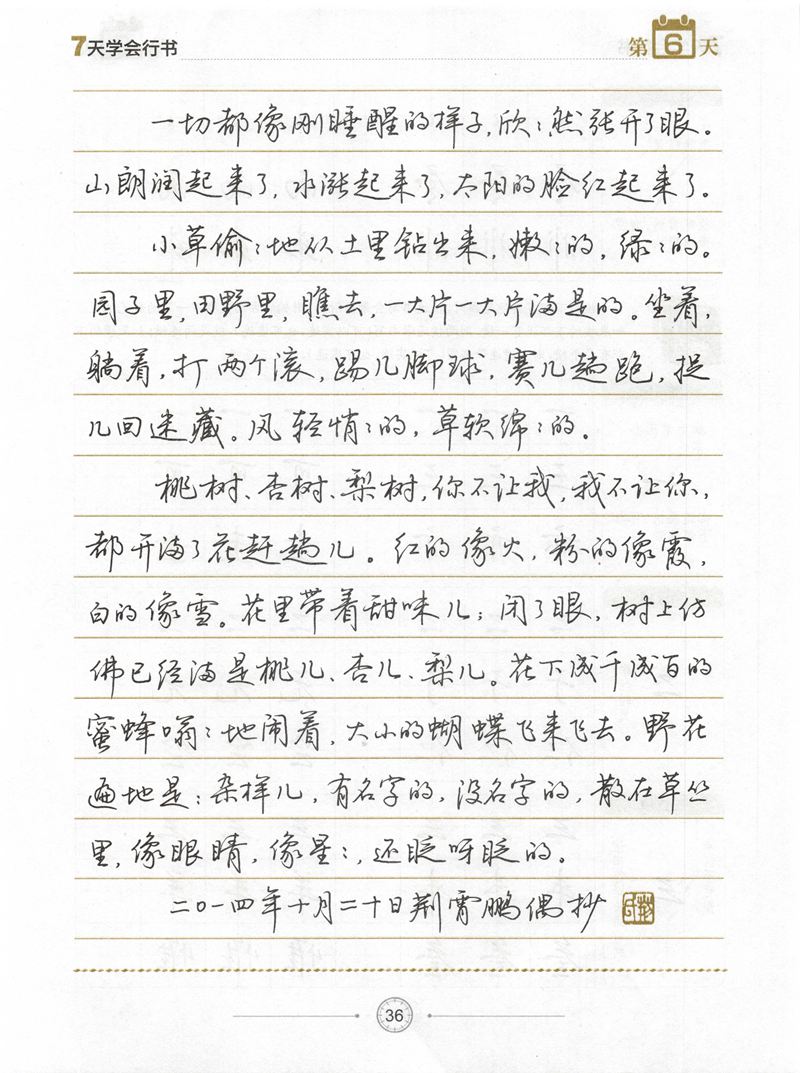 7天学会行书
第6天
一切都像刚睡醒的样子，欣：然张开了眼。
山朗润起来了，水涨起来了，太阳的脸红起来了。
小草偷：地从土里钻出来，嫩：的，绿：的。
园子里，田野里，瞧去，一大片一大片满是的。坐着，
躺着，打两个滚，踢几脚球，赛几趟跑，捉
几回迷藏。风轻悄：的，草软绵：的。
桃树、杏树、梨树，你不让我，我不让你，
都开满了花赶趟儿。红的像火，粉的像霞，
白的像雪。花里带着甜味儿；闭了眼，树上仿
佛已经满是桃儿、杏儿、梨儿。花下成千成百的
蜜蜂嗡：地闹着，大小的蝴蝶飞来飞去。野花
遍地是：杂样儿，有名字的，没名字的，散在草丛
里，像眼睛，像星：，还眨呀眨的。
二〇一四年十月二十日荆霄鹏偶抄
36